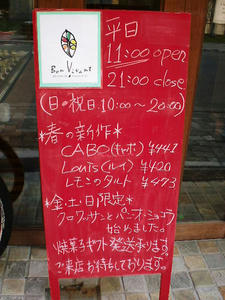 Bon Vivant
平日
11:00 open
21:00 close
(日・祝日 10:00~20:00)
*春の新作*
CABO(キャボ) ¥441
Louis(ルイ) ¥420
レモンのタルト ¥473
*金・土・日限定*
クロワッサンとパニオ・ショコラ
始めました。
焼菓子ギフト発送承ります。
ご来店お待ちしております。